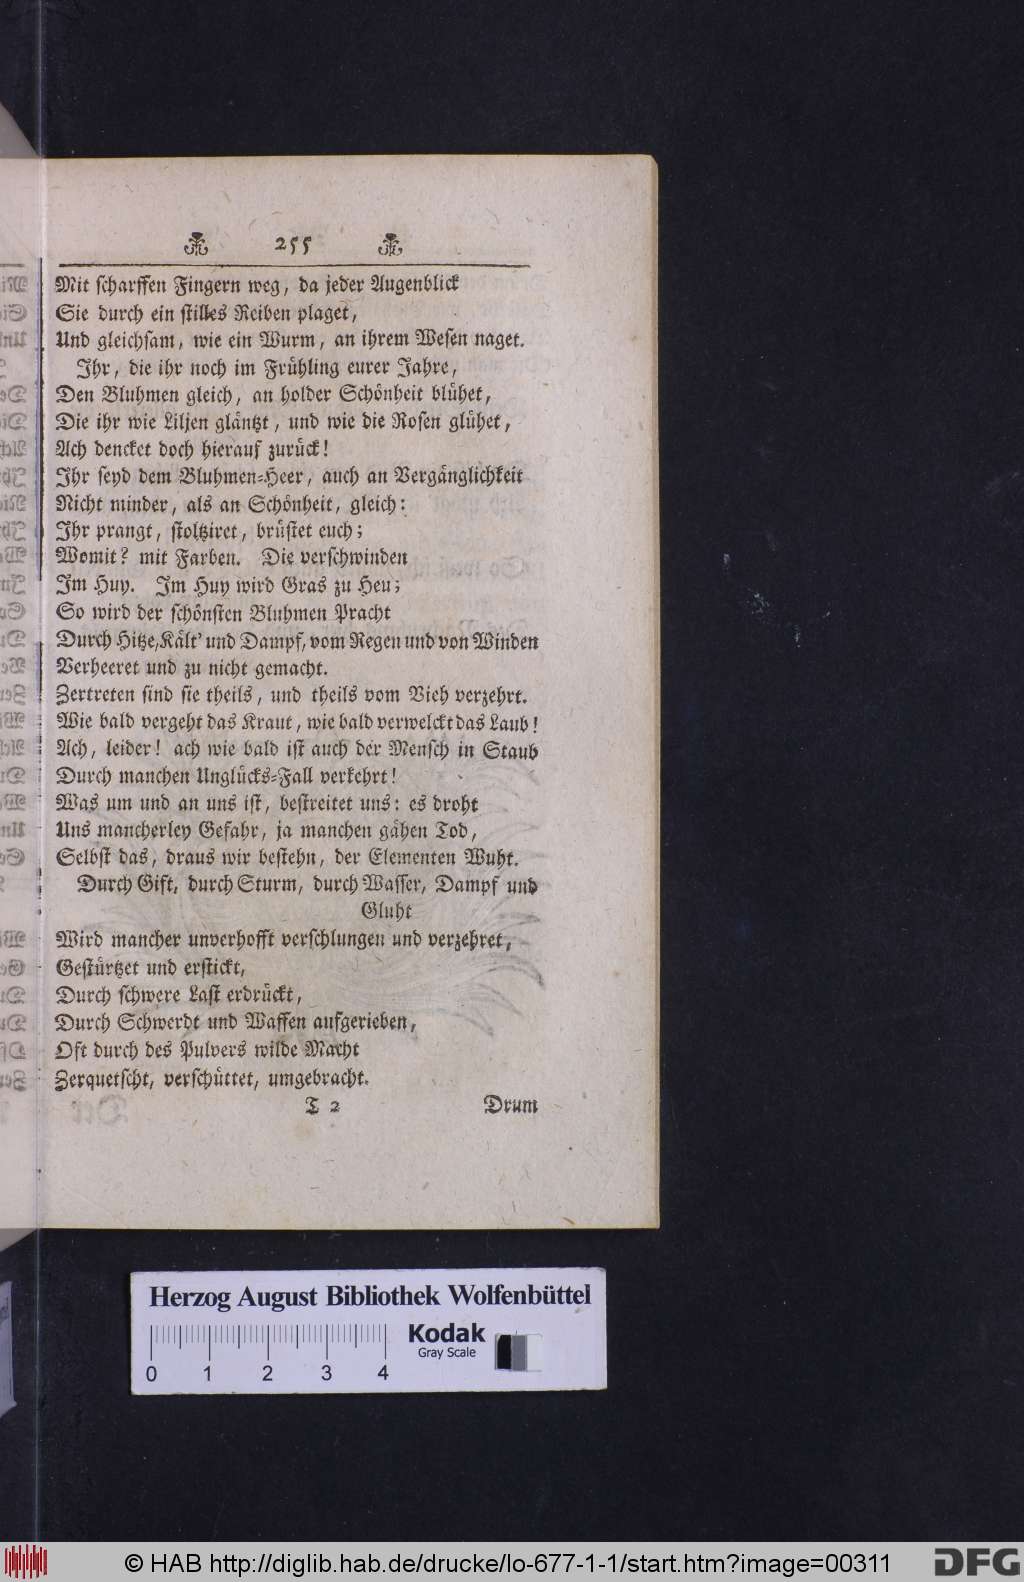 255
Mit scharffen Fingern weg, da jeder Augenblick
Sie durch ein stilles Reiben plaget,
Und gleichsam, wie ein Wurm, an ihrem Wesen naget.
Ihr, die ihr noch im Frühling eurer Jahre,
Den Bluhmen gleich, an holder Schönheit blühet,
Die ihr wie Liljen gläntzt, und wie die Rosen glühet,
Ach dencket doch hierauf zurück!
Ihr seyd dem Bluhmen-Heer, auch an Vergänglichkeit
Nicht minder, als an Schönheit, gleich:
Ihr prangt, stoltziret, brüstet euch;
Womit? mit Farben. Die verschwinden
Im Huy. Im Huy wird Gras zu Heu;
So wird der schönsten Bluhmen Pracht
Durch Hitze, Kält' und Dampf, vom Regen und von Winden
Verheeret und zu nicht gemacht.
Zertreten sind sie theils, und theils vom Vieh verzehrt.
Wie bald vergeht das Kraut, wie bald verwelckt das Laub!
Ach, leider! ach wie bald ist auch der Mensch in Staub
Durch manchen Unglücks-Fall verkehrt!
Was um und an uns ist, bestreitet uns: es droht
Uns mancherley Gefahr, ja manchen gähen Tod,
Selbst das, draus wir bestehn, der Elementen Wuht.
Durch Gift, durch Sturm, durch Wasser, Dampf und
Gluht
Wird mancher unverhofft verschlungen und verzehret,
Gestürtzet und erstickt,
Durch schwere Last erdrückt,
Durch Schwerdt und Waffen aufgerieben,
Oft durch des Pulvers wilde Macht
Zerquetscht, verschüttet, umgebracht.
T 2 Drum
Herzog August Bibliothek Wolfenbüttel
Kodak
Gray Scale
0 1 2 3 4
© HAB http://diglib.hab.de/drucke/lo-677-1-1/start.htm?image=00311
DFG